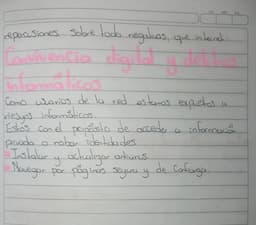 repercusiones sobre todo negativas, que intend
Convivencia digital y delitos
informáticos
Como usuarios de la red estamos expuestos a
riesgos informáticos.
Estos con el propósito de acceder a información
privada o robar identidades
Instalar y actualizar antivirus
Navegar por páginas seguras y de confianza.